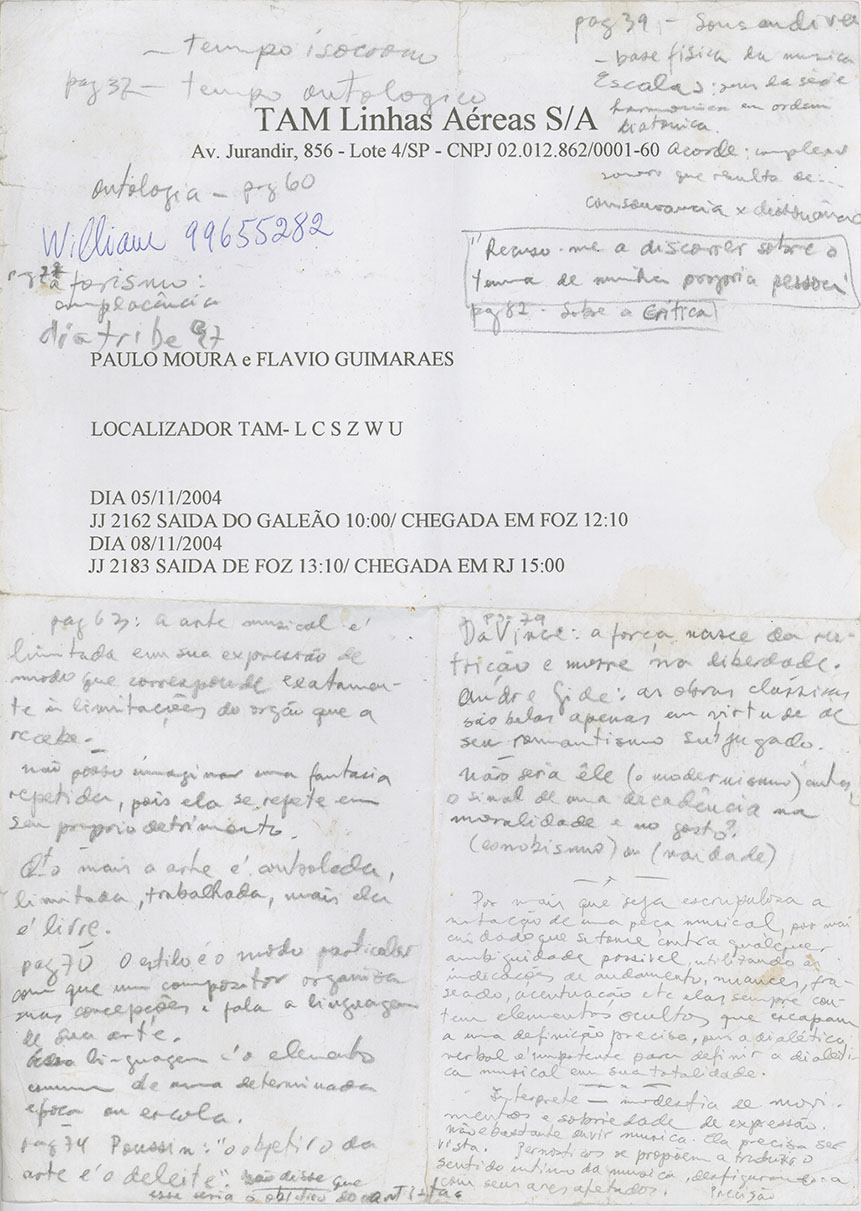 - tempo isocrono
pag 37 - tempo ontologico
pag 39 -
- base física da musica
Escalas: sons da série
harmonica em ordem
diatonica.
TAM Linhas Aéreas S/A
Av. Jurandir, 856 - Lote 4/SP - CNPJ 02.012.862/0001-60
acorde: complexo
sonoro que resulta de...
consonancia x dissonancia
ontologia - pag 60
William 99655282
complacência
diatribe 97
"Recuso-me a discorrer sobre o
tema de minha propria pessoa"
pag 82 - Sobre a Crítica
PAULO MOURA e FLAVIO GUIMARAES
LOCALIZADOR TAM- L C S Z W U
DIA 05/11/2004
JJ 2162 SAIDA DO GALEÃO 10:00/ CHEGADA EM FOZ 12:10
DIA 08/11/2004
JJ 2183 SAIDA DE FOZ 13:10/ CHEGADA EM RJ 15:00
pag 63: a arte musical é
limitada em sua expressão de
modo que corresponde exatamen-
te à limitações do orgão que a
recebe.
não posso immaginar uma fantasia
repetida, pois ela se repete em
seu proprio detrimento.
Qto mais a arte é controlada,
limitada, trabalhada, mais ela
é livre.
pag 70 O estilo é o modo particular
com que um compositor organiza
suas concepções e fala a linguagem
de sua arte.
linguagem é o elemento
comum de uma determinada
época ou escola.
pag 74 Poussin: "o objetivo da
arte é o deleite". não disse que
esse seria o objetivo do artistas
pag 79
Da Vince: a força nasce da res-
trição e morre na liberdade.
André Gide: as obras clássicas
são belas apenas em virtude de
seu romantismo subjugado.
não seria êle (o modernismo) antes,
o sinal de uma decadência na
moralidade e no gosto?
(esnobismo) ou (vaidade)
Por mais que seja escrupulosa a
notação de uma peça musical, por mais
cuidado que se tome contra qualquer
ambiguidade possivel, utilizando as
indicações de andamento, nuances, fra-
seado, acentuação etc elas sempre con-
tem elementos ocultos que escapam
a uma definição precisa, pois a dialética
verbal é impotente para definir a dialéti-
ca musical em sua totalidade.
Interprete - modestia de movi-
mentos e sobriedade de expressão.
não é bastante ouvir musica. Ela precisa ser
vista. Pernosticos se propõem a traduzir o
sentido intimo da musica, desfigurando-a
com seus ares afetados.
Precisão